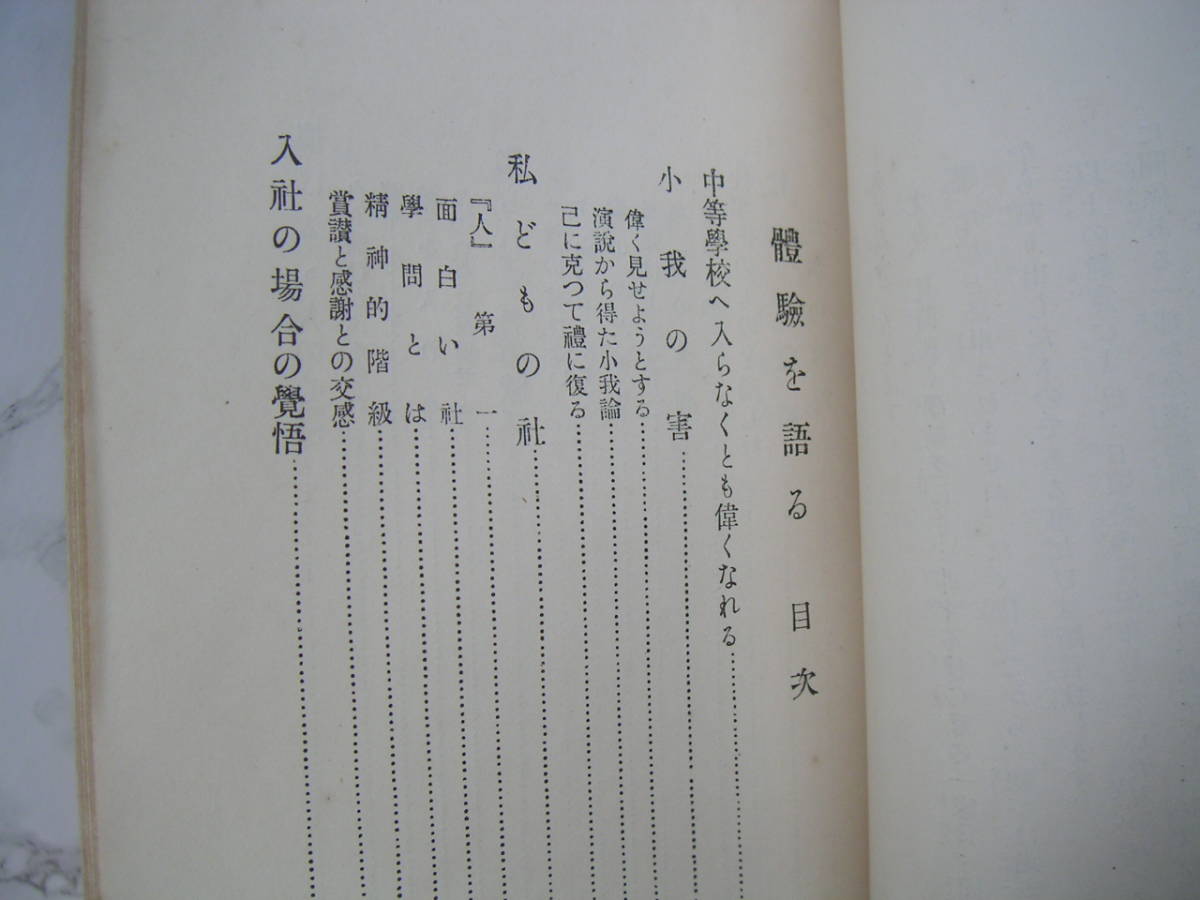 體驗を語る 目次
中等學校へ入らなくとも偉くなれる
小我の害
偉く見せようとする
演說から得た小我論
己に克つて禮に復る
私どもの社
『人』第一
面白い社
學問とは
精神的階級
賞讃と感謝との交感
入社の場合の覺悟